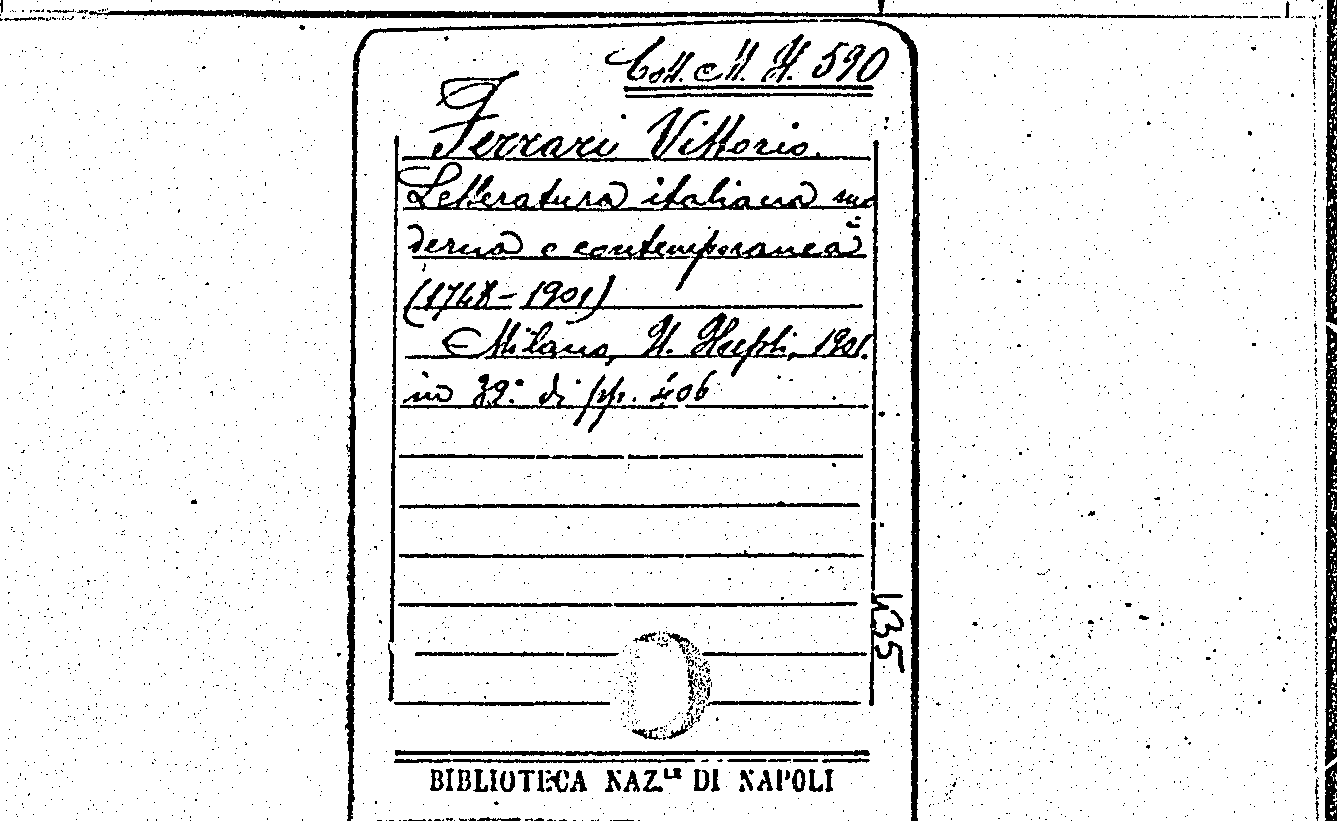 Coll. M. H. 590
Ferrari Vittorio.
Letteratura italiana mo
derna e contemporanea
(1748-1901)
Milano, U. Hoepli, 1901.
in 32.° di pp. 406
435
BIBLIOTECA NAZ.LE DI NAPOLI